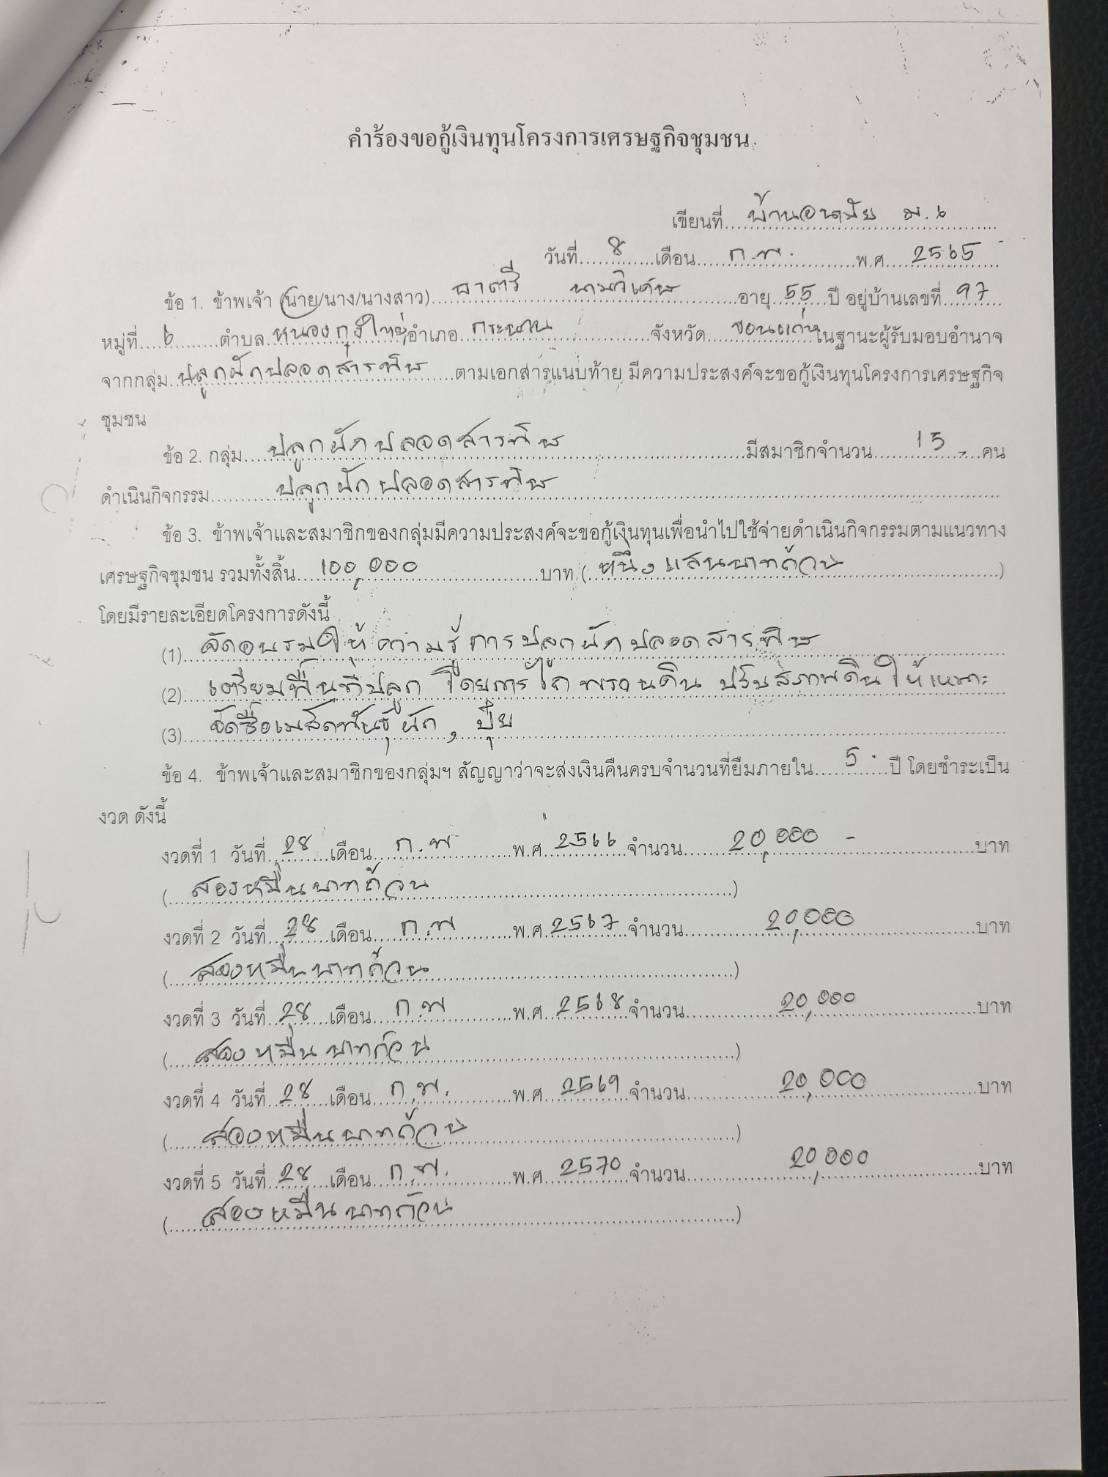 คำร้องขอกู้เงินทุนโครงการเศรษฐกิจชุมชน
เขียนที่ บ้านอนามัย ม.6
วันที่ 8 เดือน ก.พ. พ.ศ. 2565
ข้อ 1. ข้าพเจ้า (นาย/นาง/นางสาว) อายุ 55 ปี อยู่บ้านเลขที่ 97
หมู่ที่ 6 ตำบล หนองกุงใหญ่ อำเภอ กระนวน จังหวัด ขอนแก่น ในฐานะผู้รับมอบอำนาจ
จากกลุ่ม ปลูกผักปลอดสารพิษ ตามเอกสารแนบท้าย มีความประสงค์จะขอกู้เงินทุนโครงการเศรษฐกิจ
ชุมชน
ข้อ 2. กลุ่ม ปลูกผักปลอดสารพิษ มีสมาชิกจำนวน 15 คน
ดำเนินกิจกรรม ปลูกผักปลอดสารพิษ
ข้อ 3. ข้าพเจ้าและสมาชิกของกลุ่มมีความประสงค์จะขอกู้เงินทุนเพื่อนำไปใช้จ่ายดำเนินกิจกรรมตามแนวทาง
เศรษฐกิจชุมชน รวมทั้งสิ้น 100,000 บาท (หนึ่งแสนบาทถ้วน)
โดยมีรายละเอียดโครงการดังนี้
(1) จัดอบรมให้ความรู้การปลูกผักปลอดสารพิษ
(2) เตรียมพื้นที่ปลูก โดยการไถพรวนดิน ปรับสภาพดินให้เหมาะ
(3) จัดซื้อเมล็ดพันธุ์ผัก, ปุ๋ย
ข้อ 4. ข้าพเจ้าและสมาชิกของกลุ่มฯ สัญญาว่าจะส่งเงินคืนครบจำนวนที่ยืมภายใน 5 ปี โดยชำระเป็น
งวด ดังนี้
งวดที่ 1 วันที่ 28 เดือน ก.พ พ.ศ 2566 จำนวน 20,000 - บาท
(สองหมื่นบาทถ้วน)
งวดที่ 2 วันที่ 28 เดือน ก.พ พ.ศ. 2567 จำนวน 20,000 บาท
(สองหมื่นบาทถ้วน)
งวดที่ 3 วันที่ 28 เดือน ก.พ พ.ศ. 2568 จำนวน 20,000 บาท
(สองหมื่นบาทถ้วน)
งวดที่ 4 วันที่ 28 เดือน ก.พ. พ.ศ. 2569 จำนวน 20,000 บาท
(สองหมื่นบาทถ้วน)
งวดที่ 5 วันที่ 28 เดือน ก.พ. พ.ศ. 2570 จำนวน 20,000 บาท
(สองหมื่นบาทถ้วน)